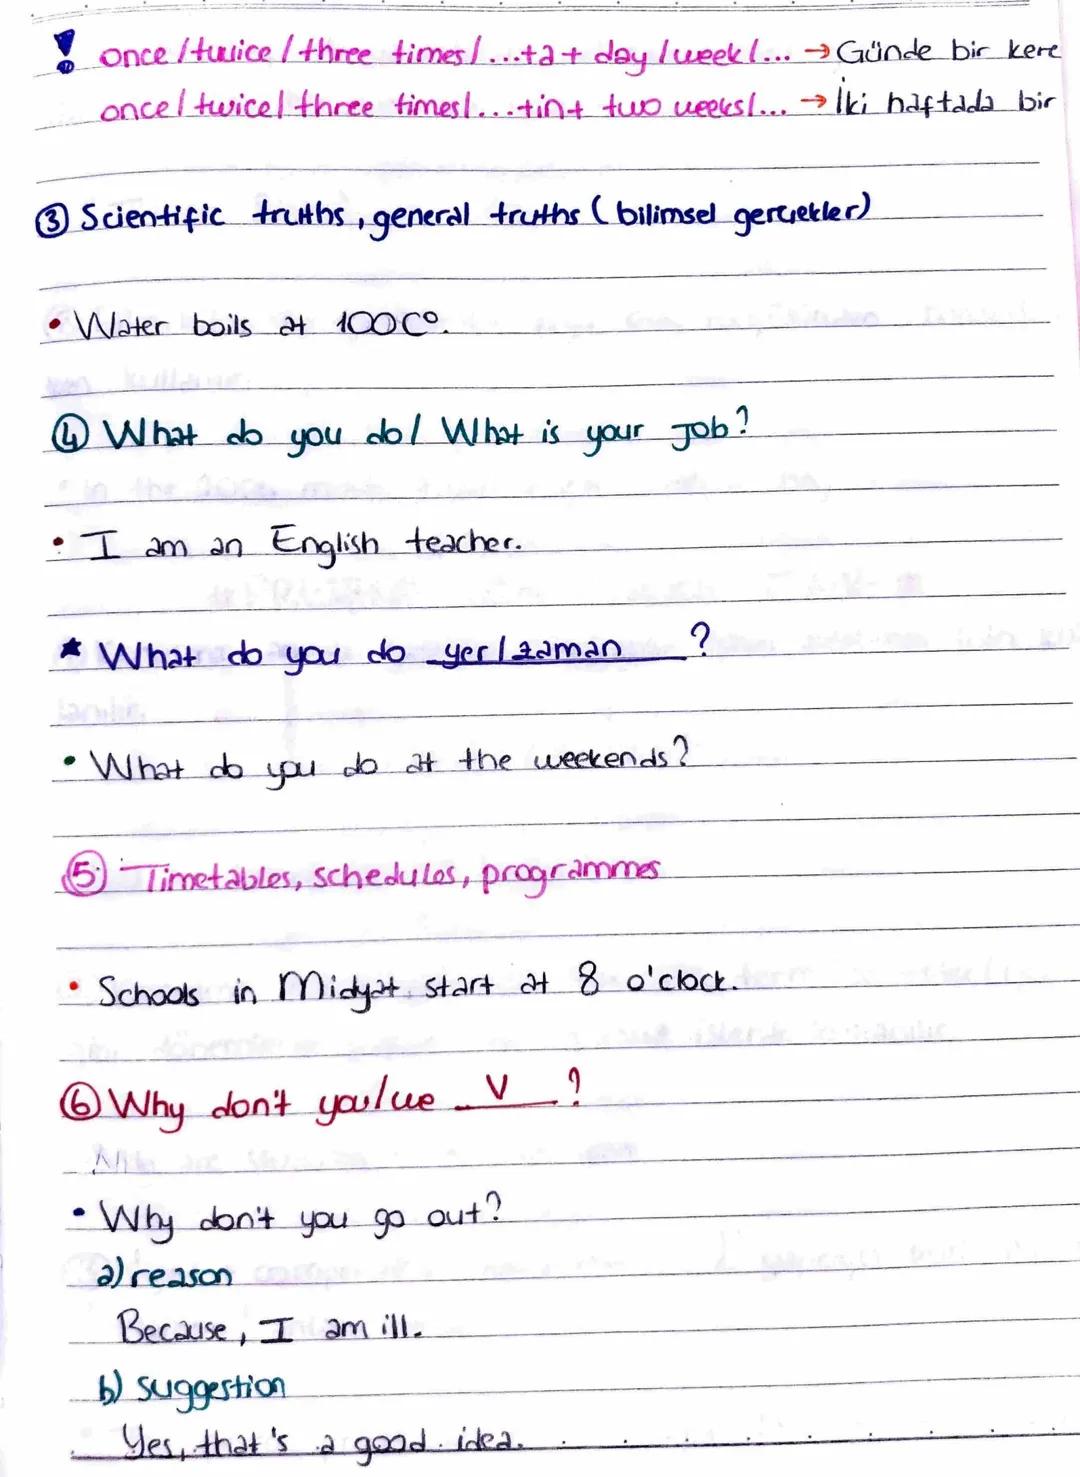 ! once / twice / three times / ...+a+ day / week / ... → Günde bir kere
once / twice / three times / ...+in+ two weeks / ... → İki haftada bir
③ Scientific truths, general truths (bilimsel gerçekler)
• Water boils at 100C°.
④ What do you do / What is your job?
• I am an English teacher.
★ What do you do yer / zaman ?
• What do you do at the weekends?
⑤ Timetables, schedules, programmes
• Schools in Midyat start at 8 o'clock.
⑥ Why don't you/we V ?
• Why don't you go out?
a) reason
Because, I am ill.
b) suggestion
Yes, that's a good idea.